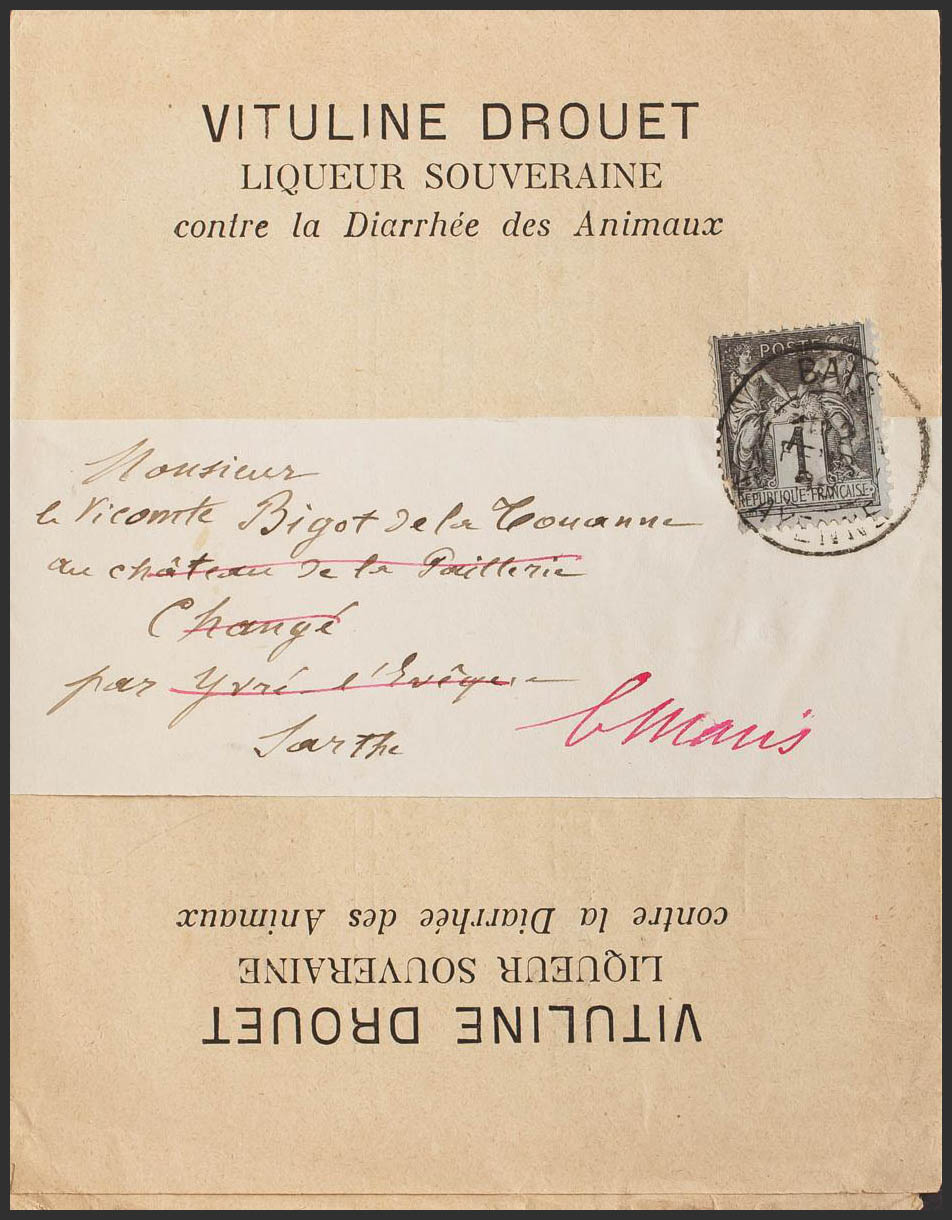 VITULINE DROUET
LIQUEUR SOUVERAINE
contre la Diarrhée des Animaux
POSTE
1
REPUBLIQUE FRANÇAISE
Monsieur
le Vicomte Bigot de la Touanne
au château de la Paillerie
Changé
par Yvré l'Evêque
Sarthe
le Mans
contre la Diarrhée des Animaux
LIQUEUR SOUVERAINE
VITULINE DROUET